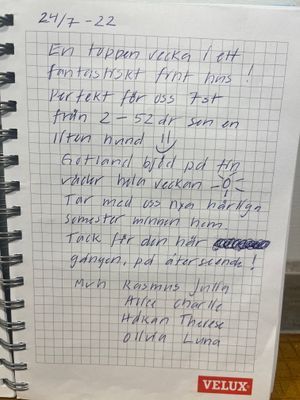 24/7-22
En toppen vecka i ett
fantastiskt fint hus!
Perfekt för oss 7st
från 2-52 år som en
liten hund
Gotland bjöd på fin
väder hela veckan
Tar med oss nya härliga
semester minnen hem.
Tack för den här
gången, på återseende!
Mvh Rasmus Julia
Alice Charlie
Håkan Therese
Olivia Luna
VELUX